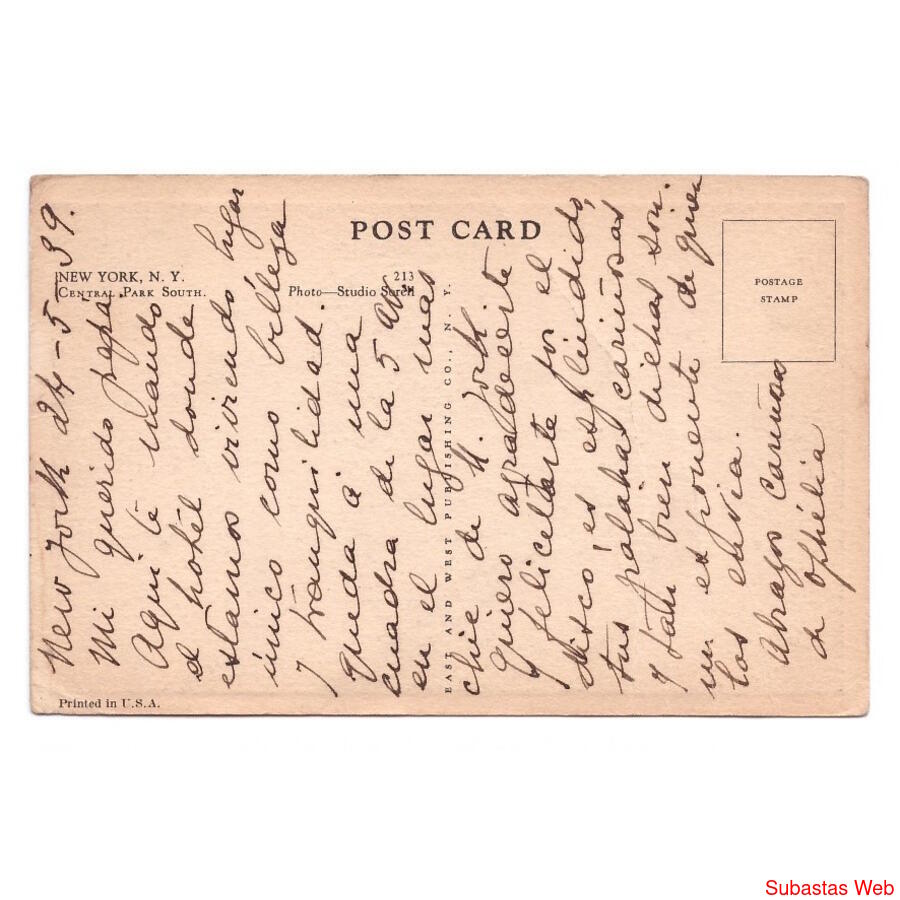 POST CARD
NEW YORK, N. Y.
CENTRAL PARK SOUTH.
213
Photo—Studio Soren
POSTAGE
STAMP
EAST AND WEST PUBLISHING CO., N. Y.
Printed in U.S.A.
New York 24-5-39.
Mi querido papá.
Aqui te mando
el hotel donde
estamos viviendo lugar
único como belleza
y tranquilidad.
Queda á una
cuadra de la 5 av
en el lugar mas
chic de N. York.
Quiero agradecerte
y felicitarte por el
disco, es esplindido,
tus palabras cariñosas
y tan bien dichas son.
un exponente de quien
los envia.
Abrazos cariñosos
de Ophelia
Subastas Web